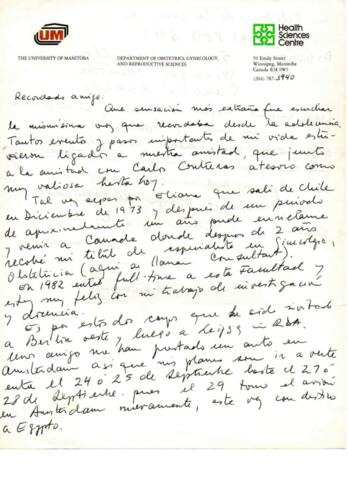 UM
Health
Sciences
Centre
THE UNIVERSITY OF MANITOBA
DEPARTMENT OF OBSTETRICS, GYNECOLOGY,
AND REPRODUCTIVE SCIENCES
59 Emily Street
Winnipeg, Manitoba
Canada R3E 0W3
(204) 787- 3940
Recordado amigo:
Que sensación más extraña fue escuchar
la mismísima voz que recordaba desde la adolescencia.
Tantos eventos y pasos importantes de mi vida estu-
vieron ligados a nuestra amistad, que junto
a la amistad con Carlos Contreras atesoro como
muy valiosa hasta hoy.
Tal vez sepas por Eliana que salí de Chile
en Diciembre de 1973 y después de un período
de aproximadamente un año pude
y venir a Canada donde después de 2 años
recibí mi título de especialista en Ginecología,
Obstetricia (aquí se llaman Consultant).
En 1982 entré full-time a esta facultad y
estoy muy feliz con mi trabajo de investigación
y docencia.
Es por estos dos cargos que he sido invitado
a Berlín oeste y luego a Leipzig in RDA.
Unos amigos me han prestado un auto en
Amsterdam asi que mis planes son ir a verte
entre el 24 ó 25 de Septiembre hasta el 27 ó
28 de Septiembre. pues el 29 tomo el avión
en Amsterdam nuevamente, esta vez con destino
a Egypto.